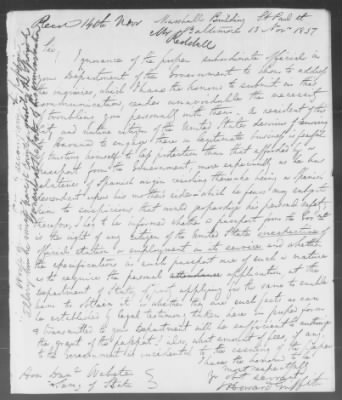 Recd 14th Nov Marshalls Building St Paul st
Mr Reddall Baltimore 13 Nov 1851
Sir,
Ignorance of the proper subordinate official in
your Department of the Government to whom to address
the inquiries, which I have the honour to submit in this
communication, renders unavoidable the necessity
of troubling you personally with them. A resident of this
and native citizen of the United States desirous of
to engage there in legitimate business is
trusting himself to less protection than that afforded by a
passport from the Government, more especially as he has
relatives of Spanish origin residing there he being a Spanish
descendent upon his mothers side which he fears may subject
him to suspicions that would jeopardize his personal safety,
therefore, I beg to be informed whether a passport from the Govmt
is the right of any citizen of the United States irrespective of
official station or employment in its service and whether
the specifications in such passport are of such a nature
as to require the personal attendance application, at the
Department of State, of
him to obtain it, or whether they are such facts as can
be established by legal testimony taken here in proper form
& transmitted to your Department will be sufficient to authorize
the grant of the passport? also, what amount of fees if any,
to the Government be incidental to the issuing of the paper
I have the honour to be
most respectfully
Yr obt servant
Hon Danl Webster
Secy of State